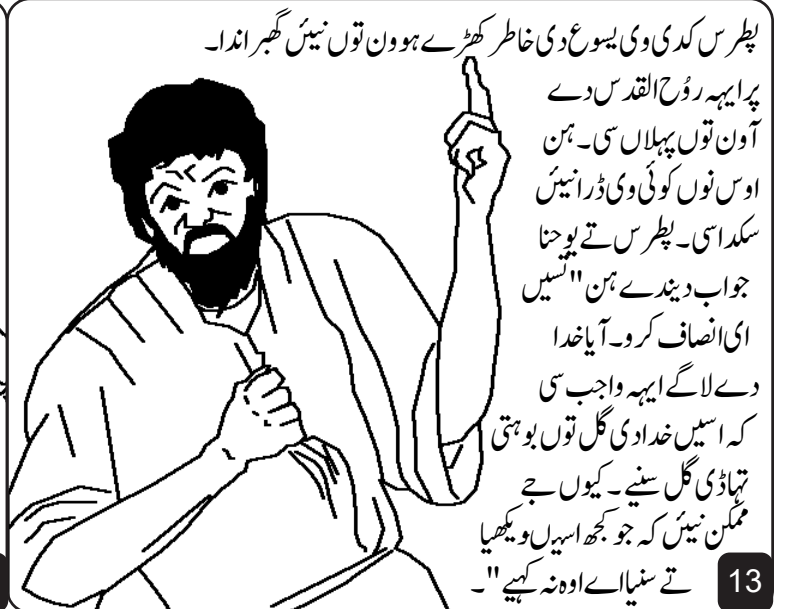 پطرس کدی وی یسوع دی خاطر کھڑے ہوون توں نیئں گھبراندا۔
پر ایہہ رُوح القدس دے
آون توں پہلاں سی۔ ہن
اوس نوں کوئی وی ڈرا نیئں
سکدا سی۔ پطرس تے یوحنا
جواب دیندے ہن "تسیں
ای انصاف کرو۔ آیا خدا
دے لاگے ایہہ واجب سی
کہ اسیں خدا دی گل توں بوہتی
تہاڈی گل سنیے۔ کیوں جے
ممکن نیئں کہ جو کجھ اسیں ویکھیا
تے سنیا اے اوہ نہ کہیے"۔
13